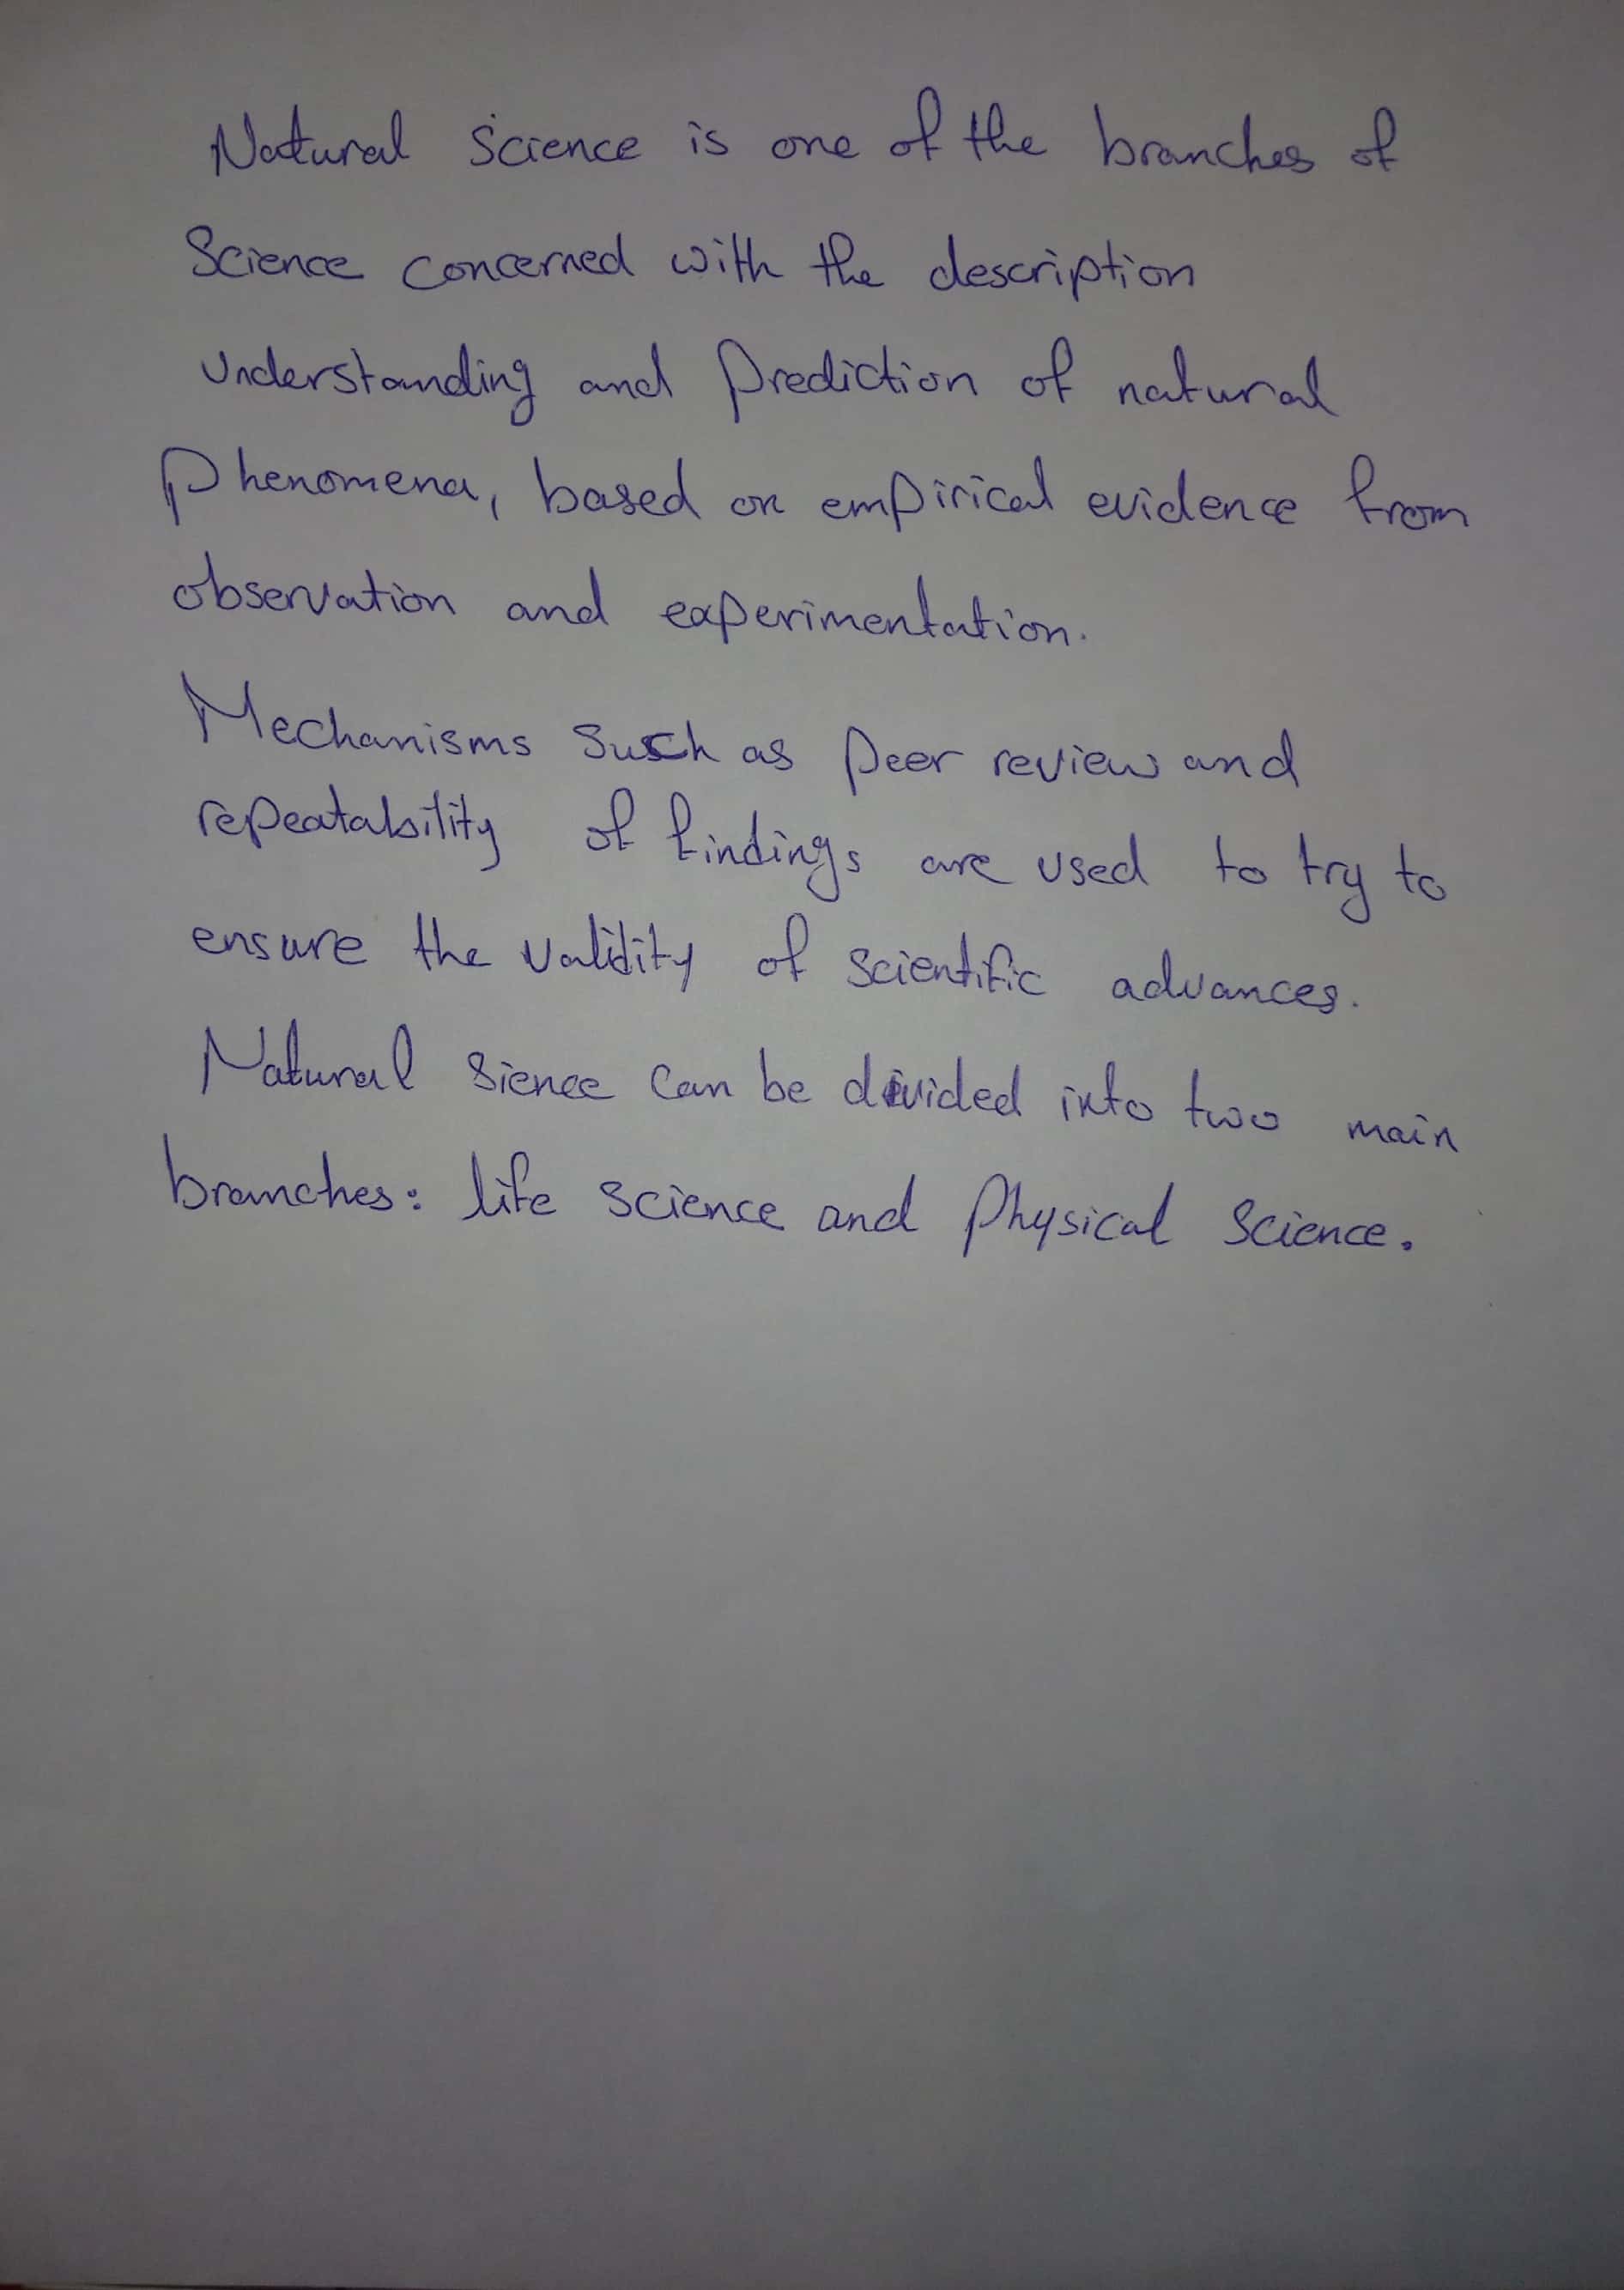 Natural Science is one of the branches of
Science concerned with the description
understanding and prediction of natural
phenomena, based on empirical evidence from
observation and experimentation.
Mechanisms such as peer review and
repeatability of findings are used to try to
ensure the validity of scientific advances.
Natural sience can be divided into two main
branches: life science and physical science.